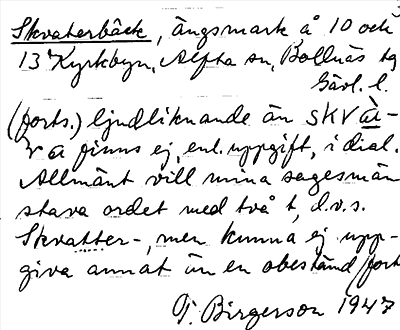 3
Skvaterbäck, ängsmark å 10 och
13 Kyrkbyn, Alfta sn, Bollnäs tg
Gävl. l.
(forts.) ljudliknande än skvà-
r a finns ej, enl. uppgift, i dial.
Allmänt vill mina sagesmän
stava ordet med två t, d.v.s.
Skvatter-, men kunna ej upp-
giva annat än en obestånd (fort
T. Birgerson 1947